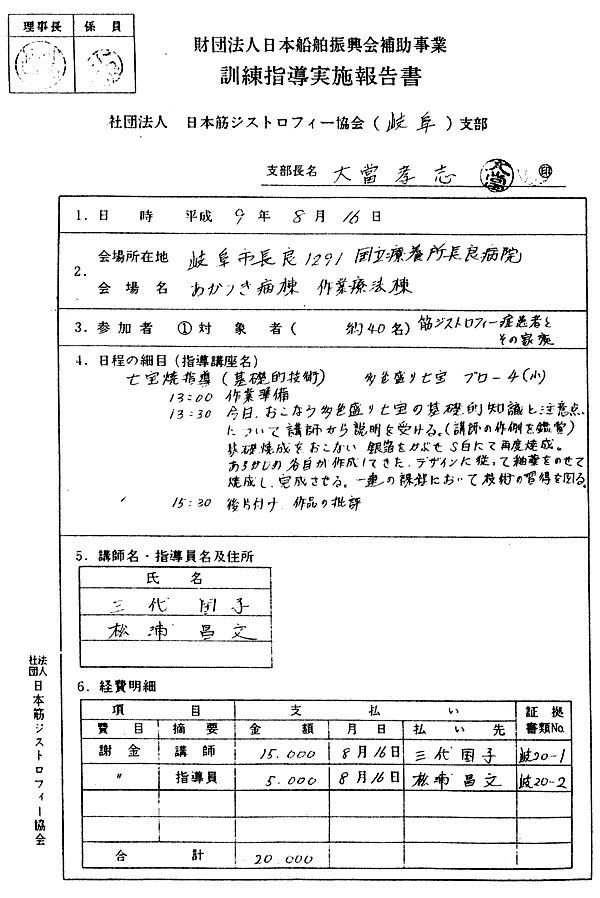 理事長 係員
財団法人日本船舶振興会補助事業
訓練指導実施報告書
社団法人 日本筋ジストロフィー協会(岐阜)支部
支部長名 大當孝志 大當 印
1. 日 時 平成 9 年 8 月 16 日
2. 会場所在地 岐阜市長良1291 国立療養所長良病院
会 場 名 あかつき病棟 作業療法棟
3. 参加者 ①対 象 者( 約40名) 筋ジストロフィー症患者と
その家族
4. 日程の細目(指導講座名)
七宝焼指導(基礎的技術) 多色盛り七宝 ブローチ(小)
13:00 作業準備
13:30 今日、おこなう多色盛り七宝の基礎的知識と注意点
について講師から説明を受ける。(講師の作例を鑑賞)
基礎焼成をおこない 銀箔をかぶせS白にて再度焼成。
あらかじめ各自が作成してきた、デザインに従って釉薬をのせて
焼成し、完成させる。一連の課程において技術の習得を図る。
15:30 後片付け、作品の批評
5. 講師名・指導員名及住所
氏 名
三代国子
松浦昌文
6. 経費明細
項 目 支 払 い 証 拠
書類No.
費 目 摘 要 金 額 月 日 払 い 先
謝 金 講 師 15.000 8月16日 三代国子 岐20-1
〃 指導員 5.000 8月16日 松浦昌文 岐20-2
合 計 20.000
社団法人 日本筋ジストロフィー協会